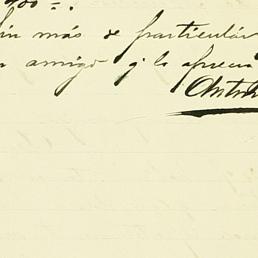 900=.
in más de particular
amigo q. lo aprecia
Anto